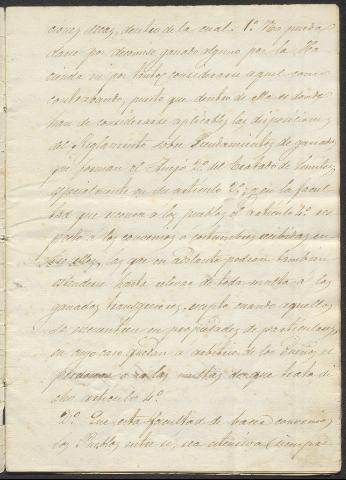 ciones dhcas, dentro de la cual. 1º No pueda
darse por decomiso ganado alguno por la Ha
cienda ni por tanto considerarse aquel como
contrabando, puesto que dentro de ella es donde
han de considerarse aplicables las disposiciones
del Reglamento sobre Prendamientos de ganado
que forman el Anejo 2º del Tratado de límites,
especialmente en su artículo 2º; y en la facul
tad que reconoce a los pueblos el artículo 4º res
pecto a los convenios o costumbres recibidas en
tre ellos, los que en adelante podrán tambien
estenderse hasta relevar de toda multa a los
ganados transgresores, escepto cuando aquellos
se encuentren en propiedades de particulares,
en cuyo caso quedan a arbitrio de los Dueños el
perdonar o no las multas de que trata di
cho artículo 4º.
2º Que esta facultad de hacer convenios
los Pueblos entre si, sea estensiva siempre